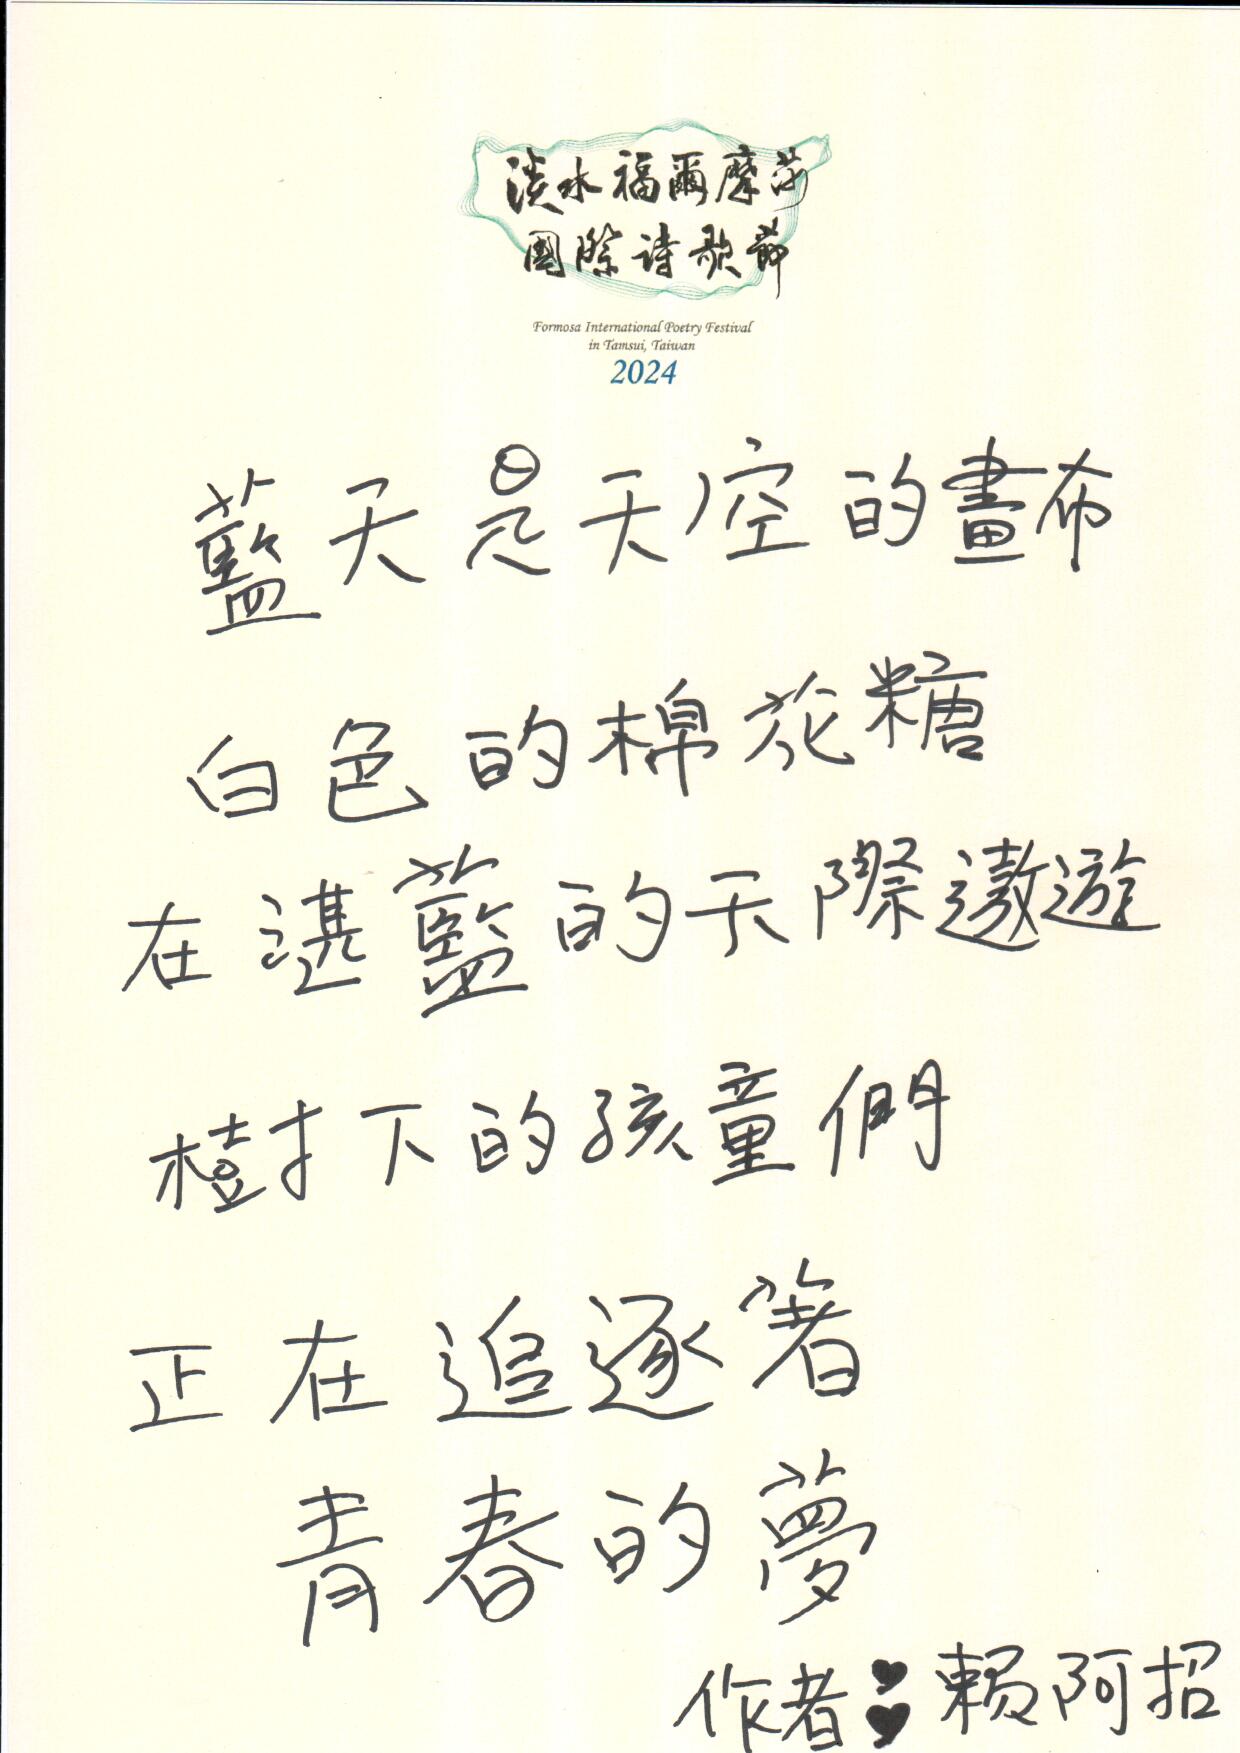 淡水福爾摩莎
國際詩歌節
Formosa International Poetry Festival
in Tamsui, Taiwan
2024
藍天是天空的畫布
白色的棉花糖
在湛藍的天際遨遊
樹下的孩童們
正在追逐著
青春的夢
作者：賴阿招